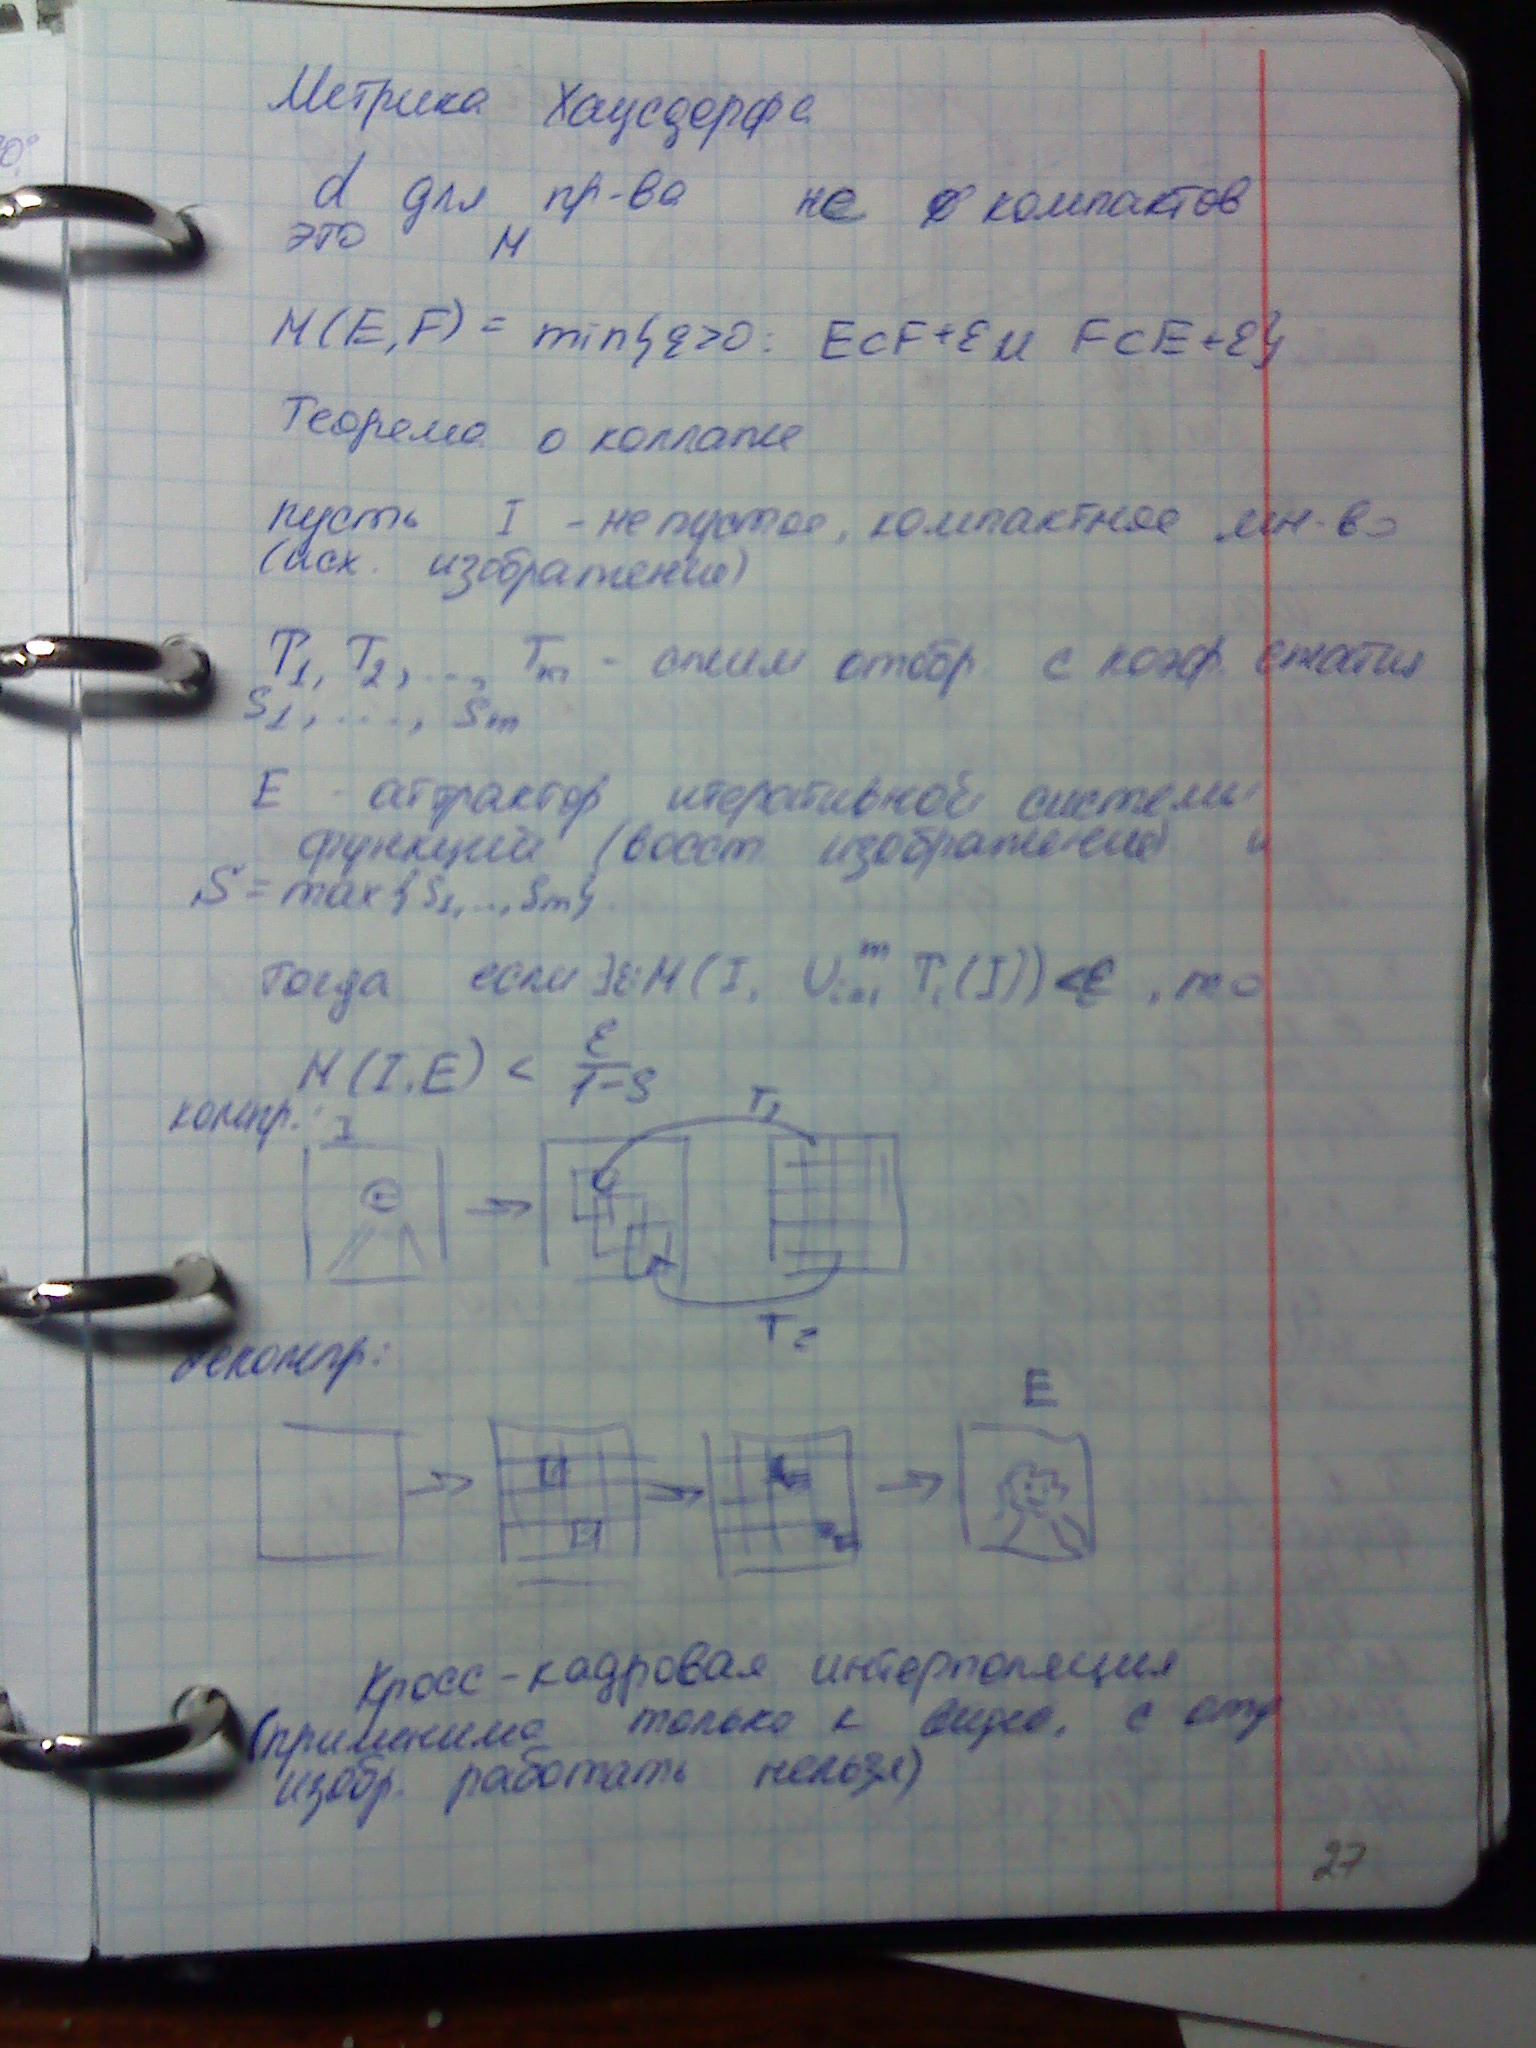 Метрика Хаусдорфа
d для пр-ва не компактов
это М
М(E,F) = min{ε>0: E⊂F+ε и F⊂E+ε}
Теорема о коллаже
пусть I - непустое, компактное мн-во
(исх. изображение)
T1, T2, ..., Tm - сжим отобр. с коэф. сжатия
S1, ...., Sm
E - аттрактор итеративной системы
функций (восст. изображение) и
S = max{S1,..,Sm}
тогда если ∃ε: М(I, U i=1 m Ti(I)) < ε, то
М(I,E) < ε/1-S
компр.: I
T1
T2
декомпр:
E
Кросс-кадровая интерполяция
(применима только к видео, с отд
изобр. работать нельзя)
27